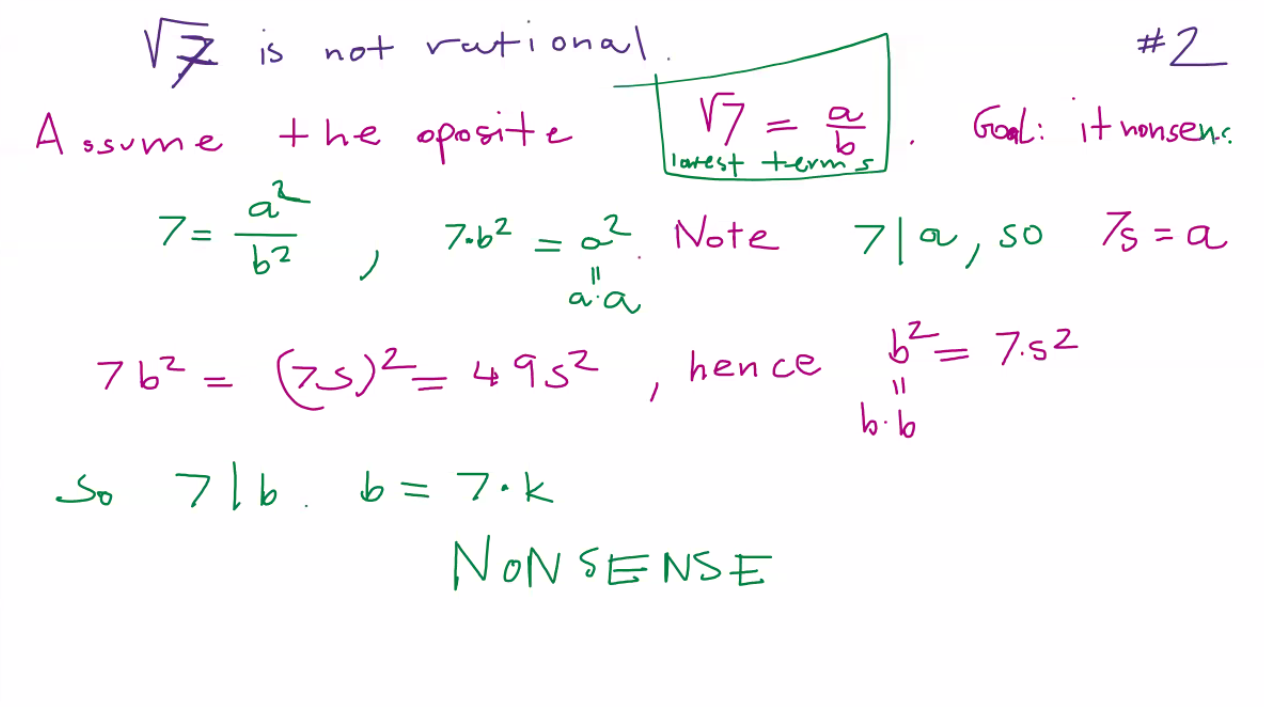 √7 is not rational. #2
Assume the oposite √7 = a/b . Goal: it nonsens.
lowest terms
7 = a²/b² , 7·b² = a². Note 7|a, so 7s = a
=
a·a
7b² = (7s)² = 49s² , hence b² = 7·s²
=
b·b
So 7|b. b = 7·k
NONSENSE